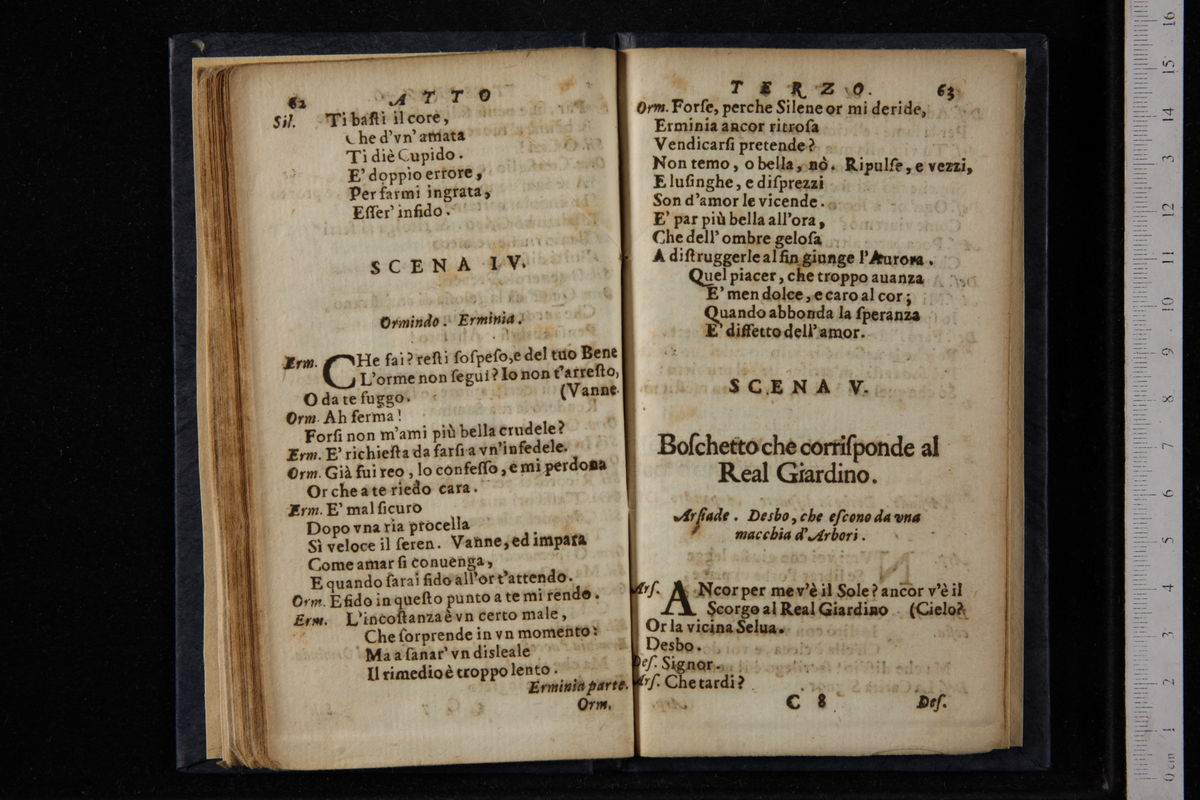 62 ATTO
Sil. Ti baſti il core,
Che d'vn' amata
Ti diè Cupido.
E' doppio errore,
Per farmi ingrata,
Eſſer' infido.
SCENA IV.
Ormindo. Erminia.
Erm. CHe fai? reſti ſoſpeſo, e del tuo Bene
L'orme non ſegui? Io non t'arreſto,
O da te fuggo. (Vanne.
Orm. Ah ferma!
Forſi non m'ami più bella crudele?
Erm. E' richieſta da farſi a vn'infedele.
Orm. Già fui reo, lo confeſſo, e mi perdona
Or che a te riedo cara.
Erm. E' mal ſicuro
Dopo vna ria procella
Sì veloce il ſeren. Vanne, ed impara
Come amar ſi conuenga,
E quando ſarai fido all'or t'attendo.
Orm. E fido in queſto punto a te mi rendo.
Erm. L'incoſtanza è vn certo male,
Che ſorprende in vn momento:
Ma a ſanar' vn disleale
Il rimedio è troppo lento.
Erminia parte.
Orm.
TERZO. 63
Orm. Forſe, perche Silene or mi deride,
Erminia ancor ritroſa
Vendicarſi pretende?
Non temo, o bella, nò. Ripulſe, e vezzi,
E luſinghe, e diſprezzi
Son d'amor le vicende.
E' par più bella all'ora,
Che dell' ombre geloſa
A diſtruggerle al fin giunge l'Aurora.
Quel piacer, che troppo auanza
E' men dolce, e caro al cor;
Quando abbonda la ſperanza
E' diffetto dell' amor.
SCENA V.
Boſchetto che corriſponde al
Real Giardino.
Arſiade. Desbo, che eſcono da vna
macchia d'Arbori.
Arſ. ANcor per me v'è il Sole? ancor v'è il
Scorgo al Real Giardino (Cielo?
Or la vicina Selua.
Desbo.
Deſ. Signor.
Arſ. Che tardi?
C 8 Deſ.
0 cm 1 2 3 4 5 6 7 8 9 10 11 12 13 14 15 16